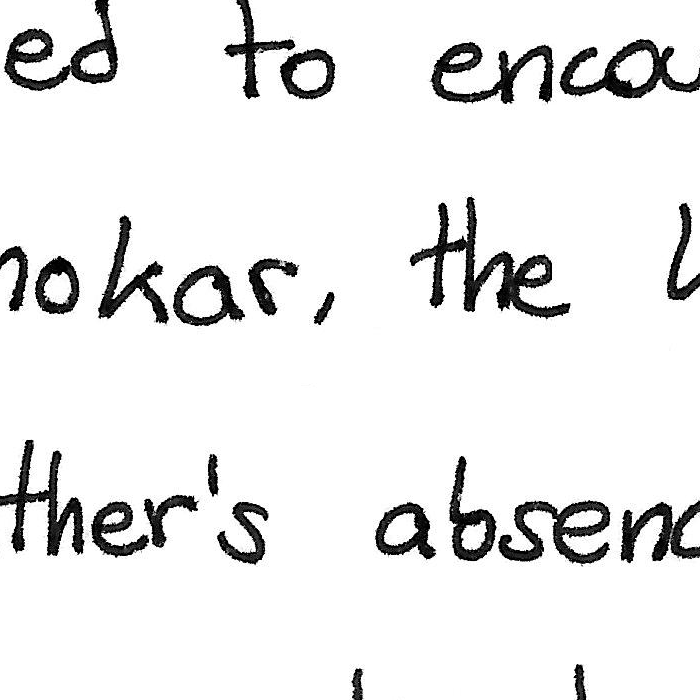 ed to encou
nokar, the
ther's absenc